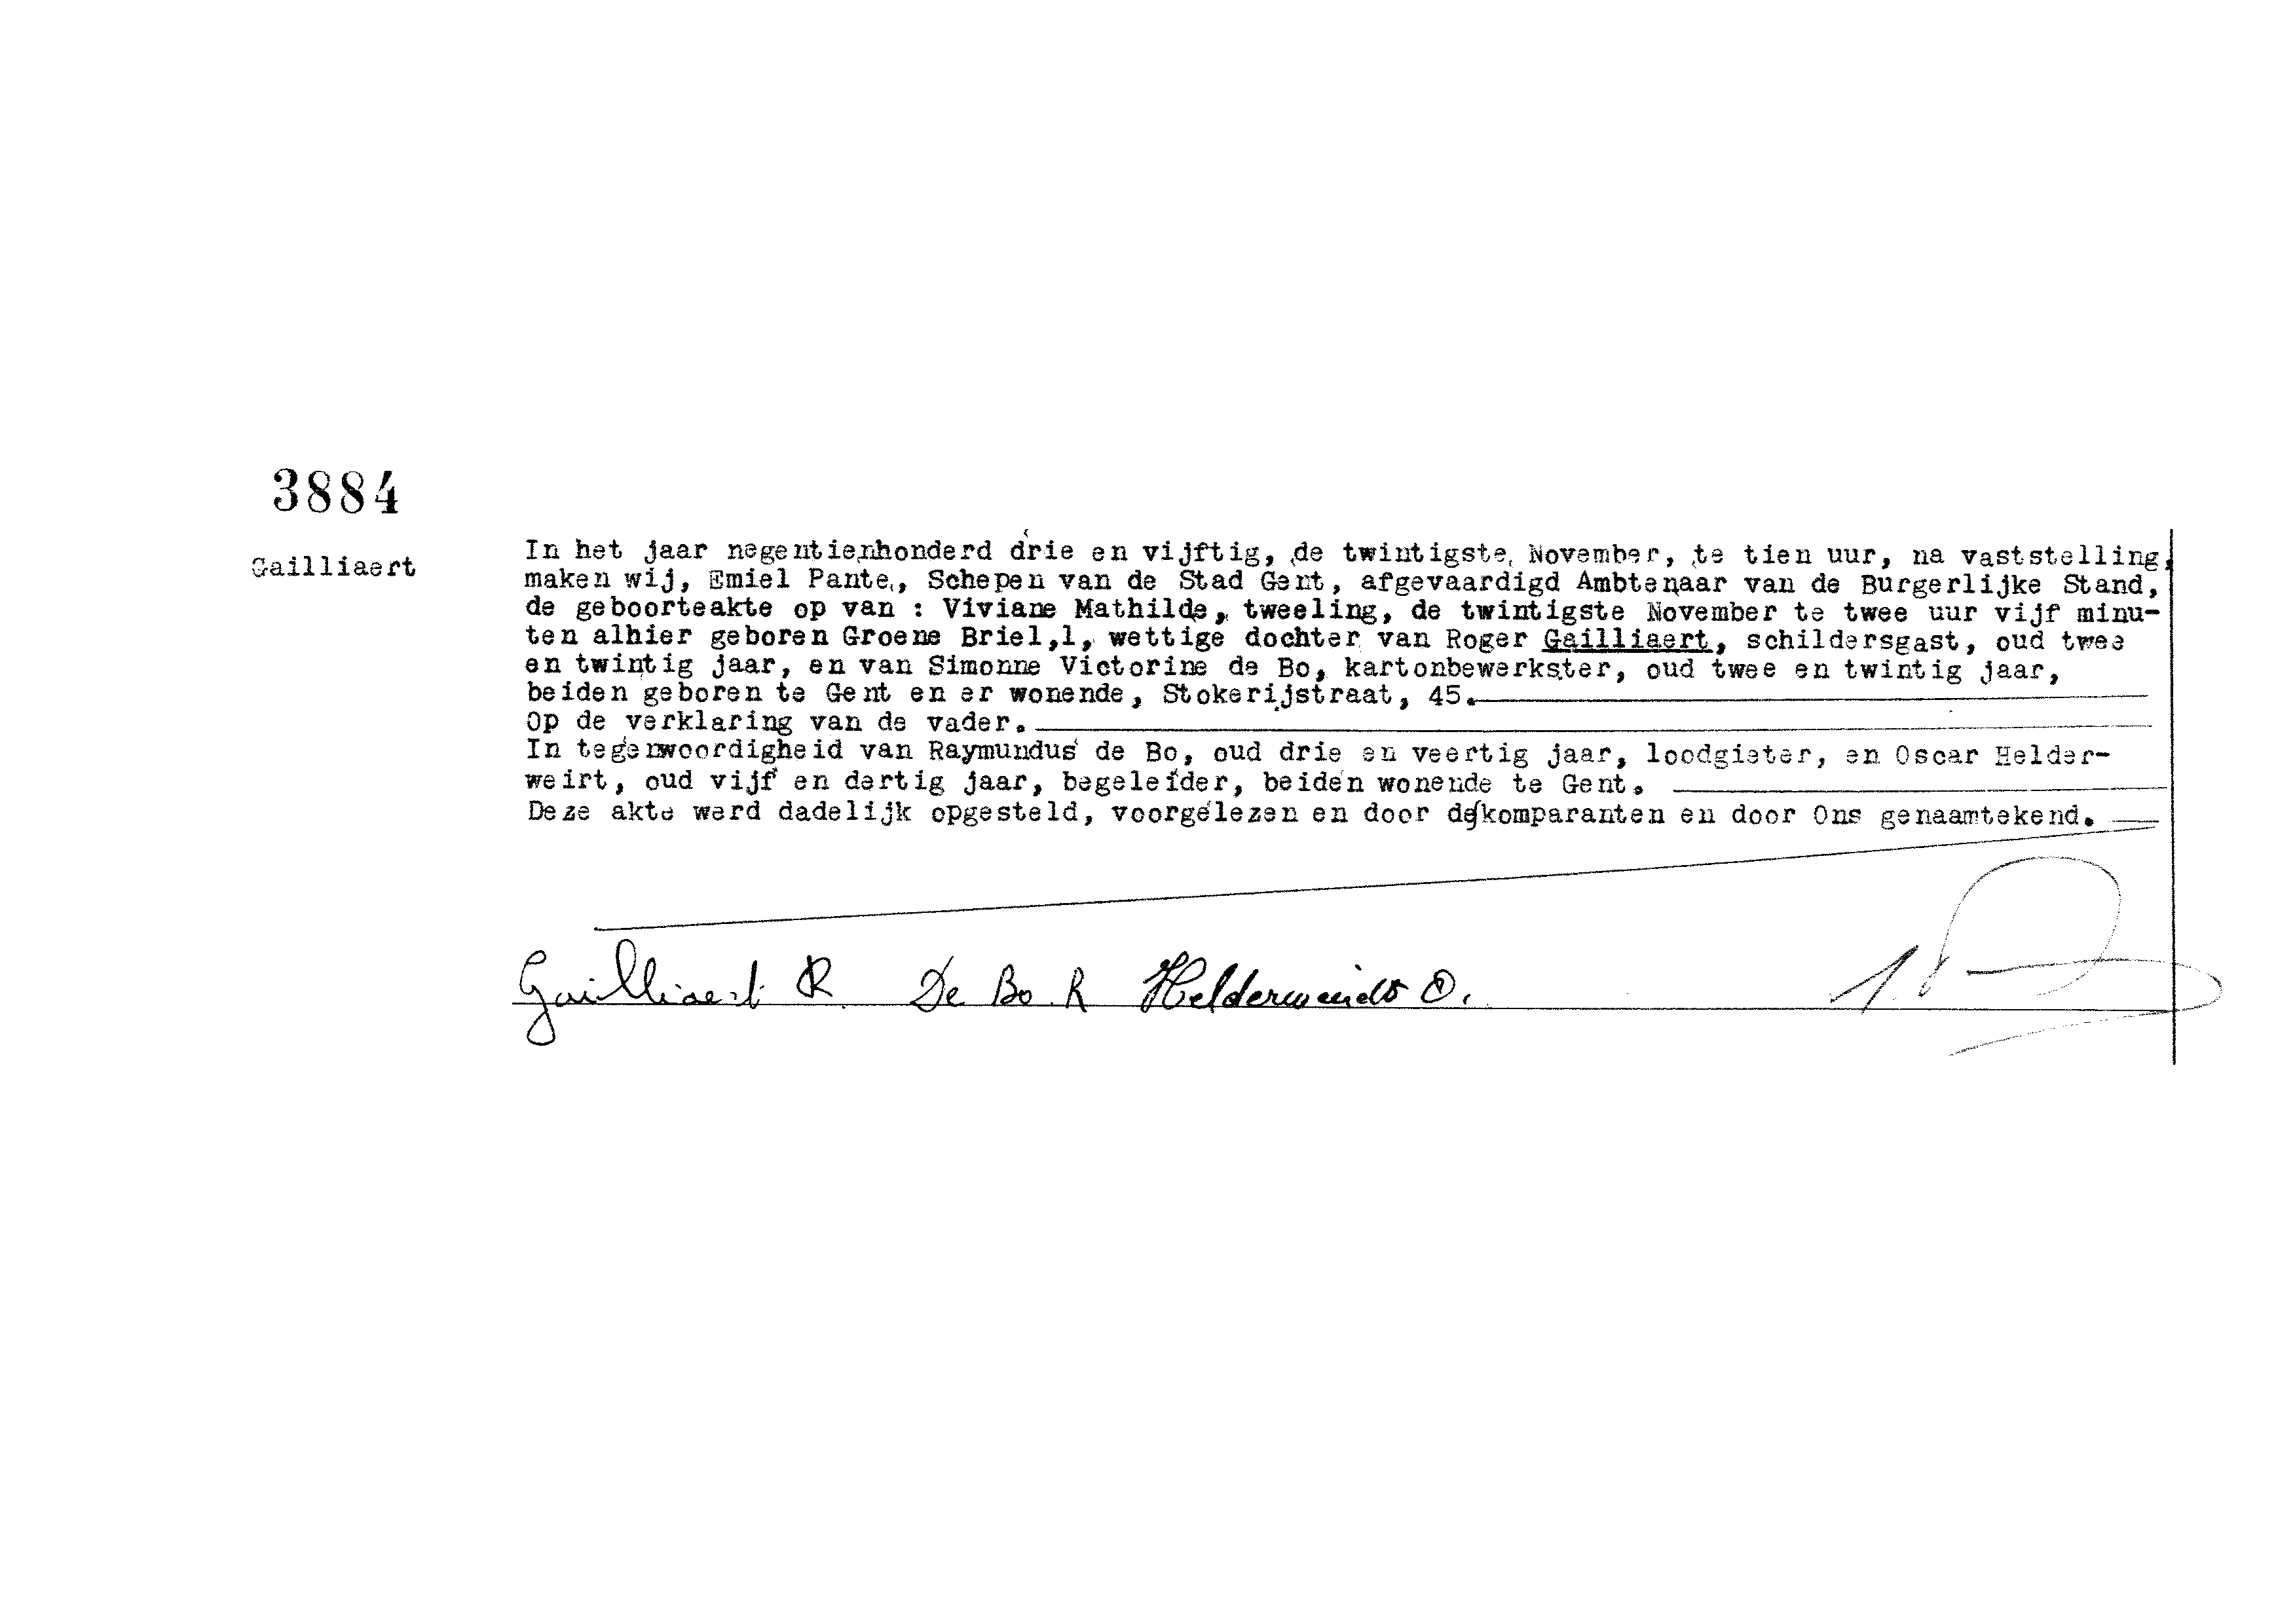 3884
Gailliaert
In het jaar negentienhonderd drie en vijftig, de twintigste November, te tien uur, na vaststelling,
maken wij, Emiel Pante, Schepen van de Stad Gent, afgevaardigd Ambtenaar van de Burgerlijke Stand,
de geboorteakte op van : Viviane Mathilde, tweeling, de twintigste November te twee uur vijf minu-
ten alhier geboren Groene Briel,1, wettige dochter van Roger Gailliaert, schildersgast, oud twee
en twintig jaar, en van Simonne Victorine de Bo, kartonbewerkster, oud twee en twintig jaar,
beiden geboren te Gent en er wonende, Stokerijstraat, 45.
Op de verklaring van de vader.
In tegenwoordigheid van Raymundus de Bo, oud drie en veertig jaar, loodgieter, en Oscar Helder-
weirt, oud vijf en dertig jaar, begeleider, beiden wonende te Gent.
Deze akte werd dadelijk opgesteld, voorgelezen en door de komparanten en door Ons genaamtekend.
Gailliaert R. De Bo R Helderweirdt O.